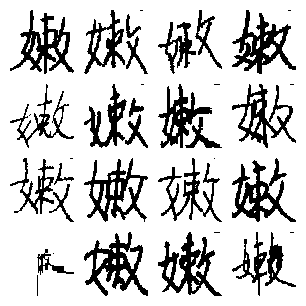 嫩嫩嫩嫩
嫩嫩嫩嫩
嫩嫩嫩嫩
嫩嫩嫩